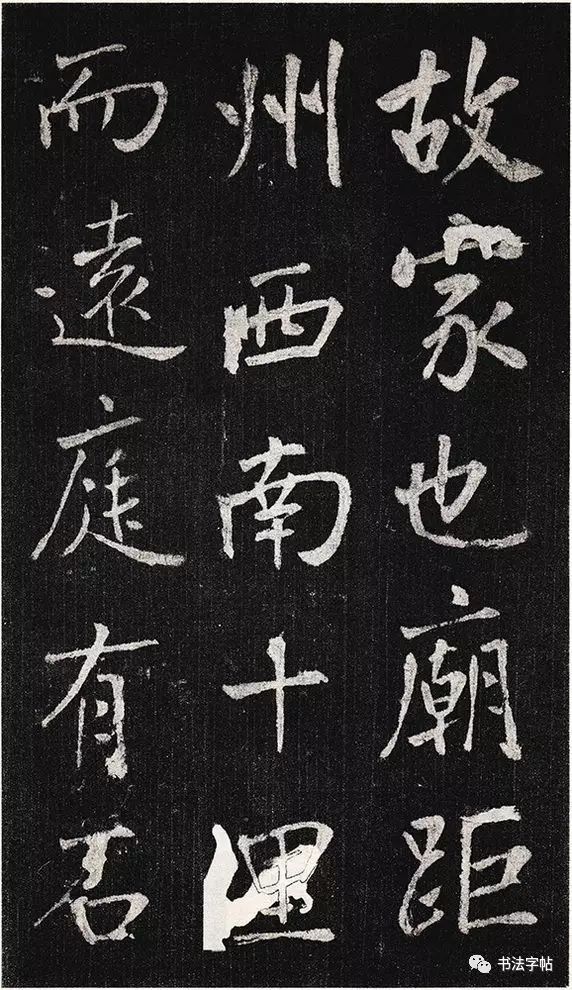 故家也廟距
州西南十里
而遠庭有石
书法字帖